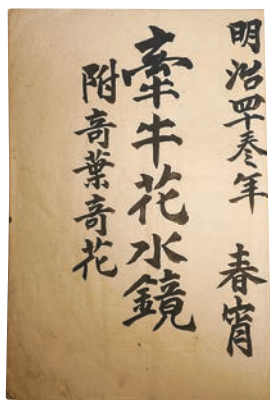 明治四十叁年 春宵
牽牛花水鏡
附奇葉奇花